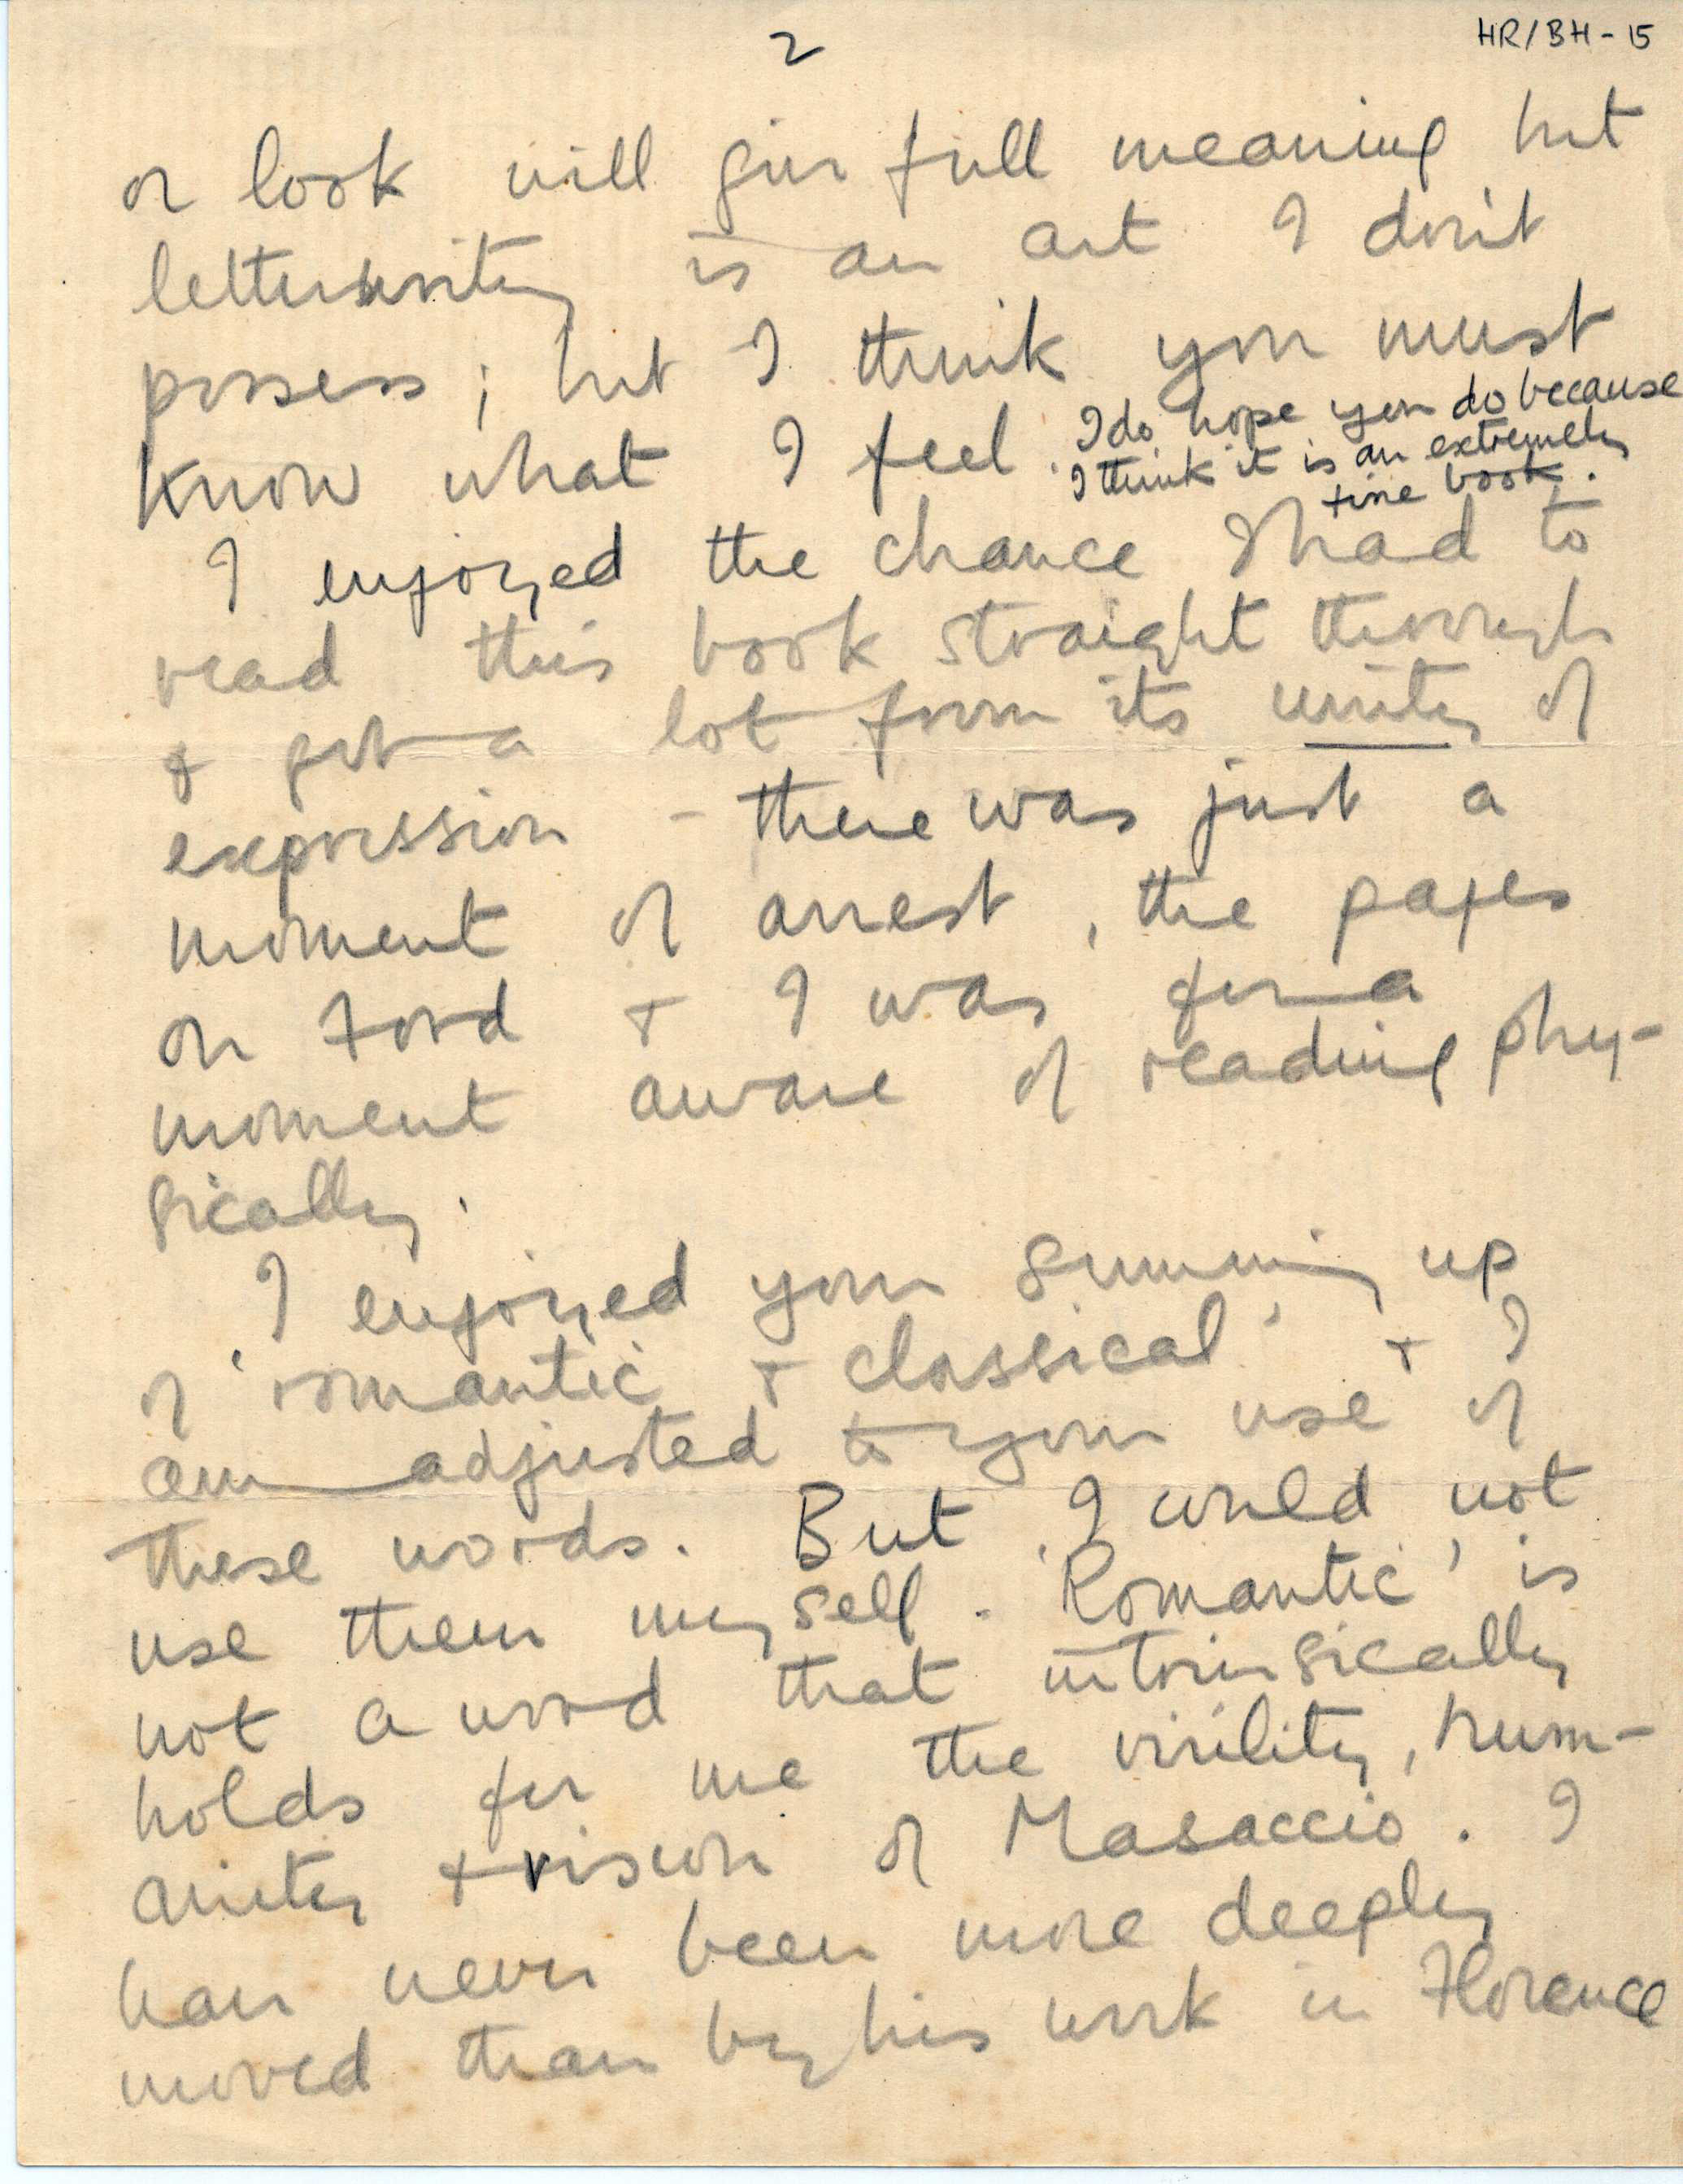 2
HR/BH-15
or look will give full meaning but
letterwriting is an art I don't
possess; but I think you must
know what I feel. I do hope you do because
I think it is an extremely
fine book.
I enjoyed the chance I had to
read this book straight through
& got a lot from its unity of
expression - there was just a
moment of arrest, the pages
on Ford & I was for a
moment aware of reading phy-
sically.
I enjoyed your summing up
of 'romantic & classical' & I
am adjusted to your use of
these words. But I would not
use them myself. 'Romantic' is
not a word that intrinsically
holds for me the virility, hum-
anity & vision of Masaccio. I
have never been more deeply
moved than by his work in Florence